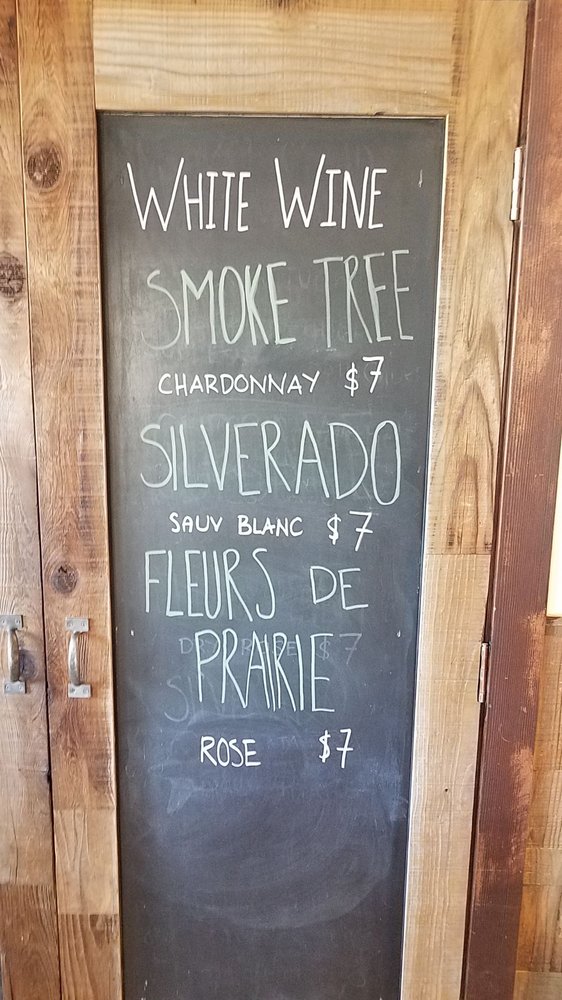 WHITE WINE
SMOKE TREE
CHARDONNAY $7
SILVERADO
SAUV BLANC $7
FLEURS DE
PRAIRIE
ROSE $7